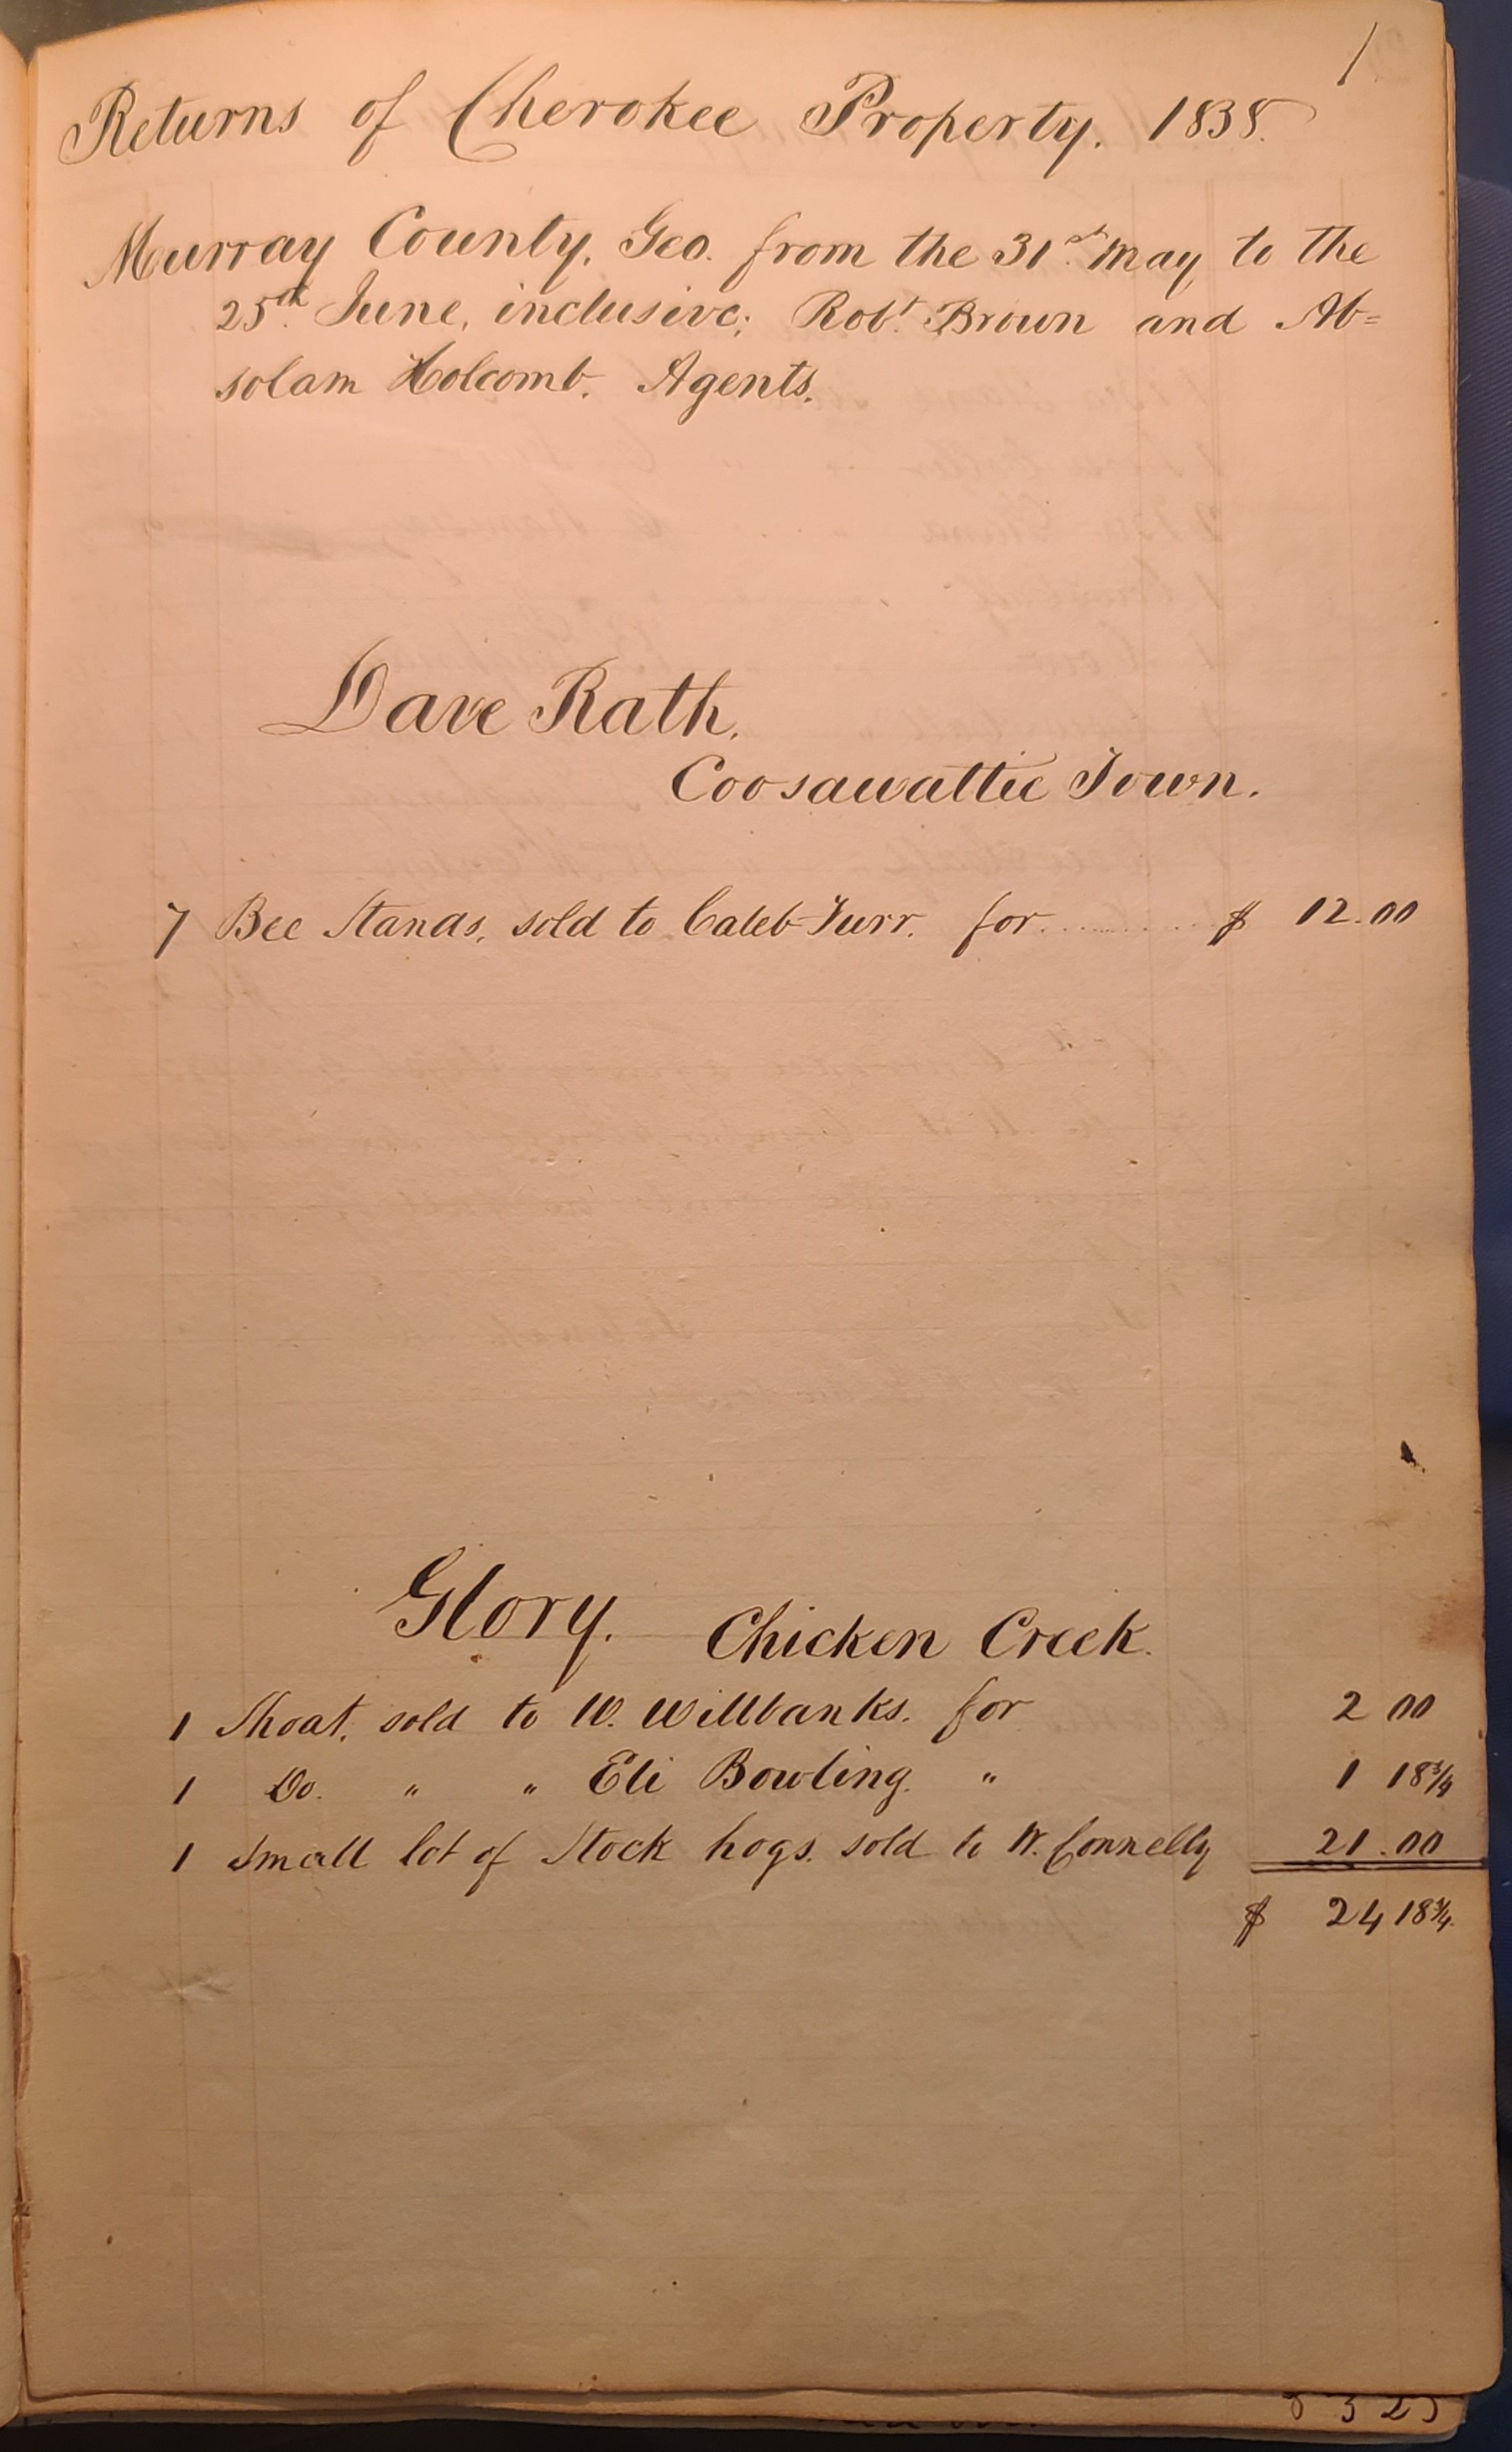 1
Returns of Cherokee Property. 1838.
Murray County, Geo. from the 31st May to the
25th June, inclusive; Robt. Brown and Ab=
solam Holcomb. Agents.
Dave Rath.
Coosawattie Town.
7 Bee Stands, sold to Caleb Turr. for.......... $ 12.00
Glory. Chicken Creek.
1 Shoat, sold to W. Willbanks. for 2 00
1 Do. " " Eli Bowling. " 1 18¾
1 Small lot of Stock hogs. sold to W. Connelly 21.00
$ 24 18¾
8 3 25